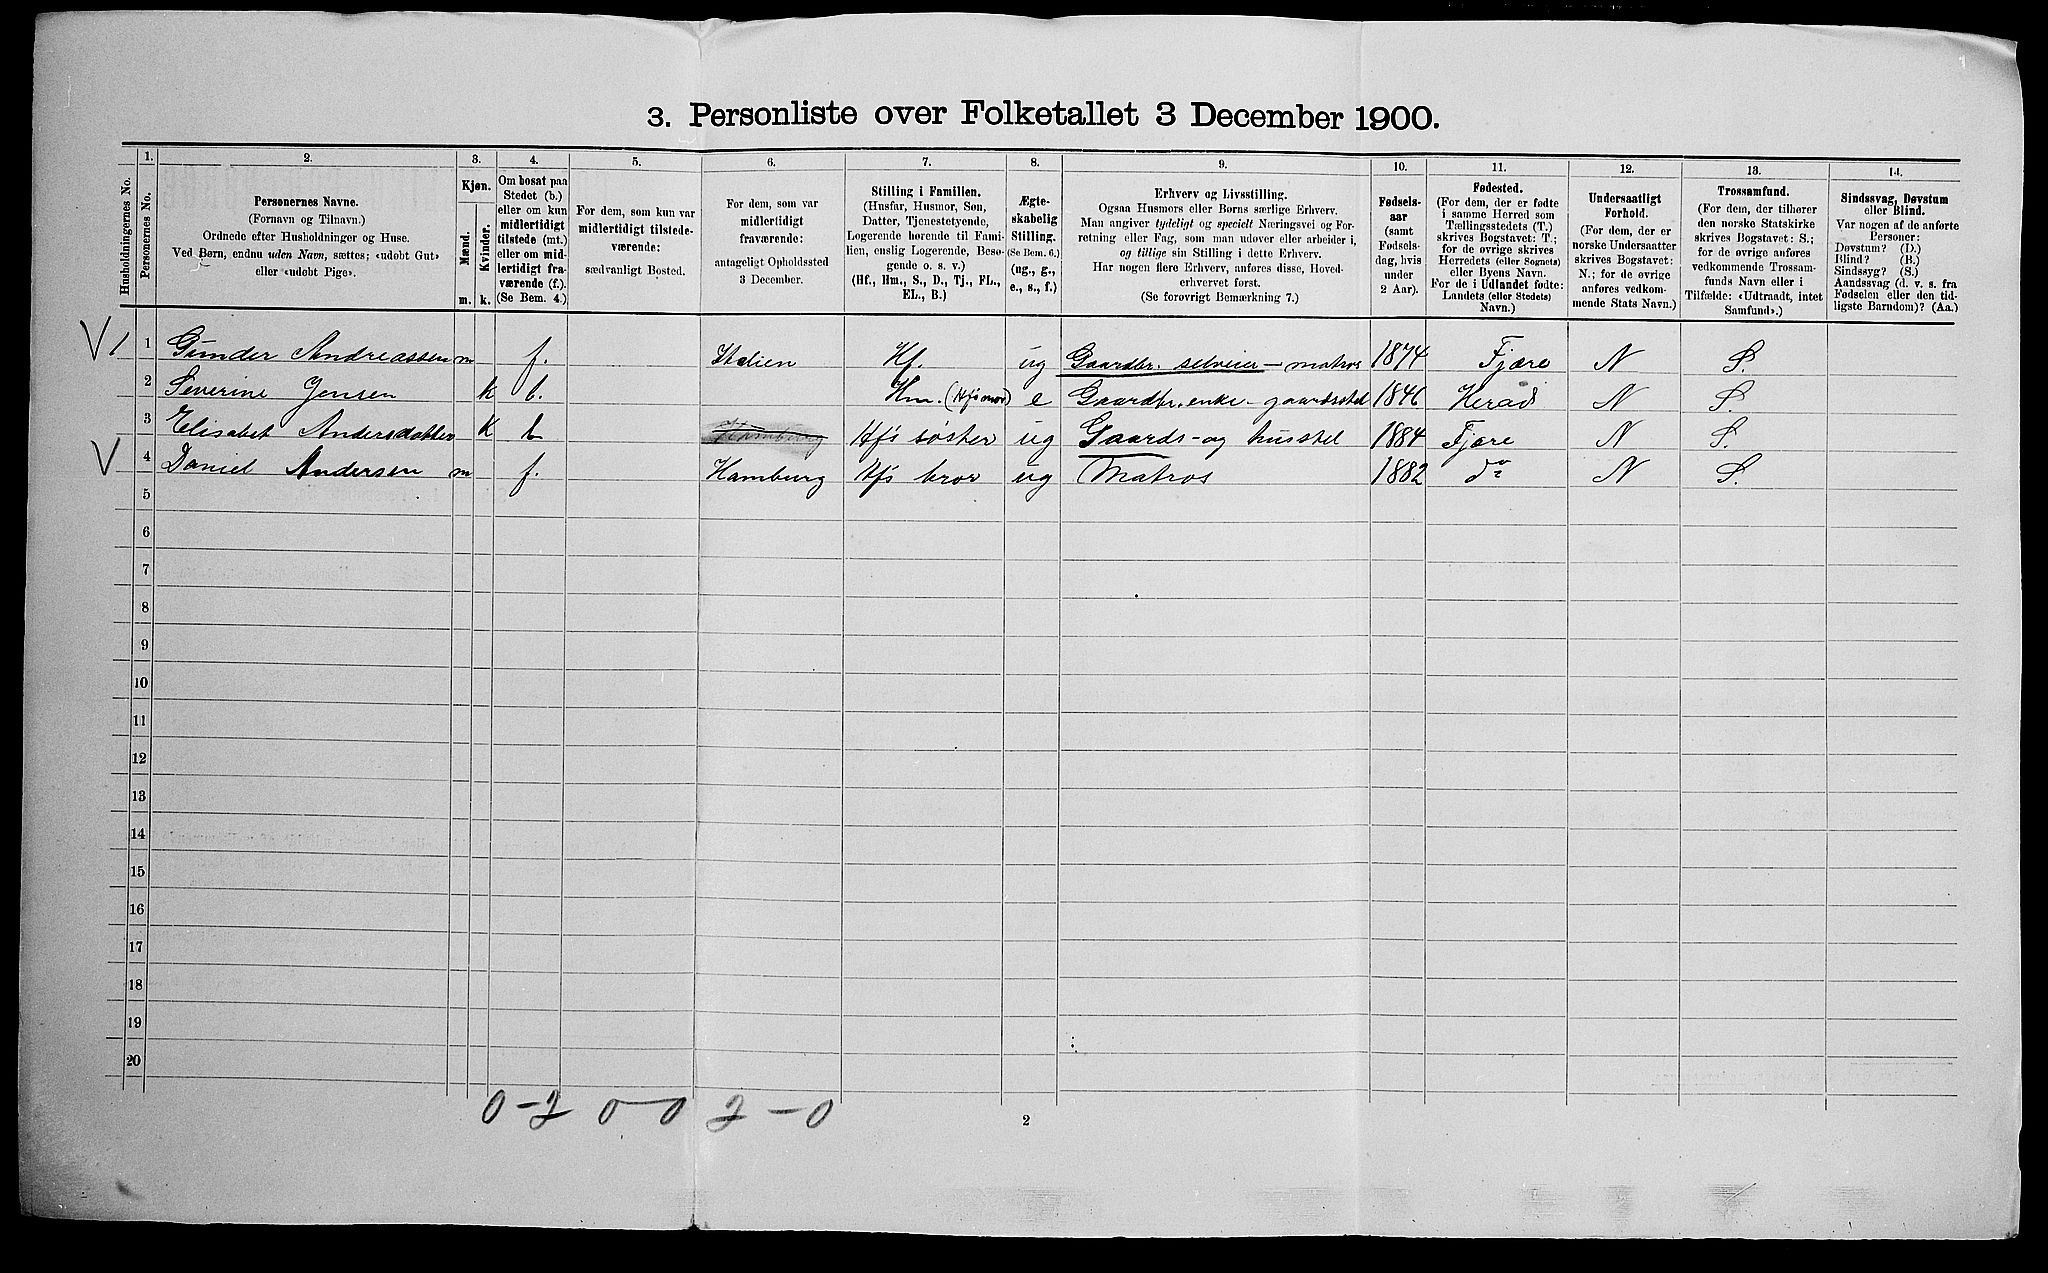 3. Personliste over Folketallet 3 December 1900.
Husholdningernes No.
1. Personernes No.
2. Personernes Navne.
(Fornavn og Tilnavn.)
Ordnede efter Husholdninger og Huse.
Ved Børn, endnu uden Navn, sættes; «udøbt Gut»
eller «udøbt Pige».
3. Kjøn.
Mænd.
Kvinder.
m. k.
4. Om bosat paa
Stedet (b.)
eller om kun
midlertidigt
tilstede (mt.)
eller om mid-
lertidigt fra-
værende (f.).
(Se Bem. 4.)
5. For dem, som kun var
midlertidigt tilstede-
værende:
sædvanligt Bosted.
6. For dem, som var
midlertidigt
fraværende:
antageligt Opholdssted
3 December.
7. Stilling i Familien.
(Husfar, Husmor, Søn,
Datter, Tjenestetyende,
Logerende hørende til Fami-
lien, enslig Logerende, Besø-
gende o. s. v.)
(Hf., Hm., S., D., Tj., FL.,
EL., B.)
8. Ægte-
skabelig
Stilling.
(Se Bem. 6.)
(ug., g.,
e., s., f.)
9. Erhverv og Livsstilling.
Ogsaa Husmors eller Børns særlige Erhverv.
Man angiver tydeligt og specielt Næringsvei og For-
retning eller Fag, som man udøver eller arbeider i,
og tillige sin Stilling i dette Erhverv.
Har nogen flere Erhverv, anføres disse, Hoved-
erhvervet først.
(Se forøvrigt Bemærkning 7.)
10. Fødsels-
aar
(samt
Fødsels-
dag, hvis
under
2 Aar).
11. Fødested.
(For dem, der er fødte
i samme Herred som
Tællingsstedets (T.)
skrives Bogstavet: T.;
for de øvrige skrives
Herredets (eller Sognets)
eller Byens Navn.
For de i Udlandet fødte:
Landets (eller Stedets)
Navn.)
12. Undersaatligt
Forhold.
(For dem, der er
norske Undersaatter
skrives Bogstavet:
N.; for de øvrige
anføres vedkom-
mende Stats Navn.)
13. Trossamfund.
(For dem, der tilhører
den norske Statskirke
skrives Bogstavet: S.;
for de øvrige anføres
vedkommende Trossam-
funds Navn eller i
Tilfælde: «Udtraadt, intet
Samfund».)
14. Sindssvag, Døvstum
eller Blind.
Var nogen af de anførte
Personer:
Døvstum? (D.)
Blind? (B.)
Sindssyg? (S.)
Aandssvag (d. v. s. fra
Fødselen eller den tid-
ligste Barndom)? (Aa.)
V 1 1 Gunder Andreassen m f. Italien Hf. ug Gaardbr. selveier - matros 1874 Fjære N S.
2 Severine Jensen k b. Hm. (Hfs mor) e Gaardbr. enke - gaardsstel 1846 Heraad N S.
3 Elisabet Andersdatter k b Hamburg Hfs søster ug Gaards- og husstel 1884 Fjære N S.
V 4 Daniel Andersen m f. Hamburg Hfs bror ug Matros 1882 do N S.
5
6
7
8
9
10
11
12
13
14
15
16
17
18
19
20
0-2 0-0 2-0
2